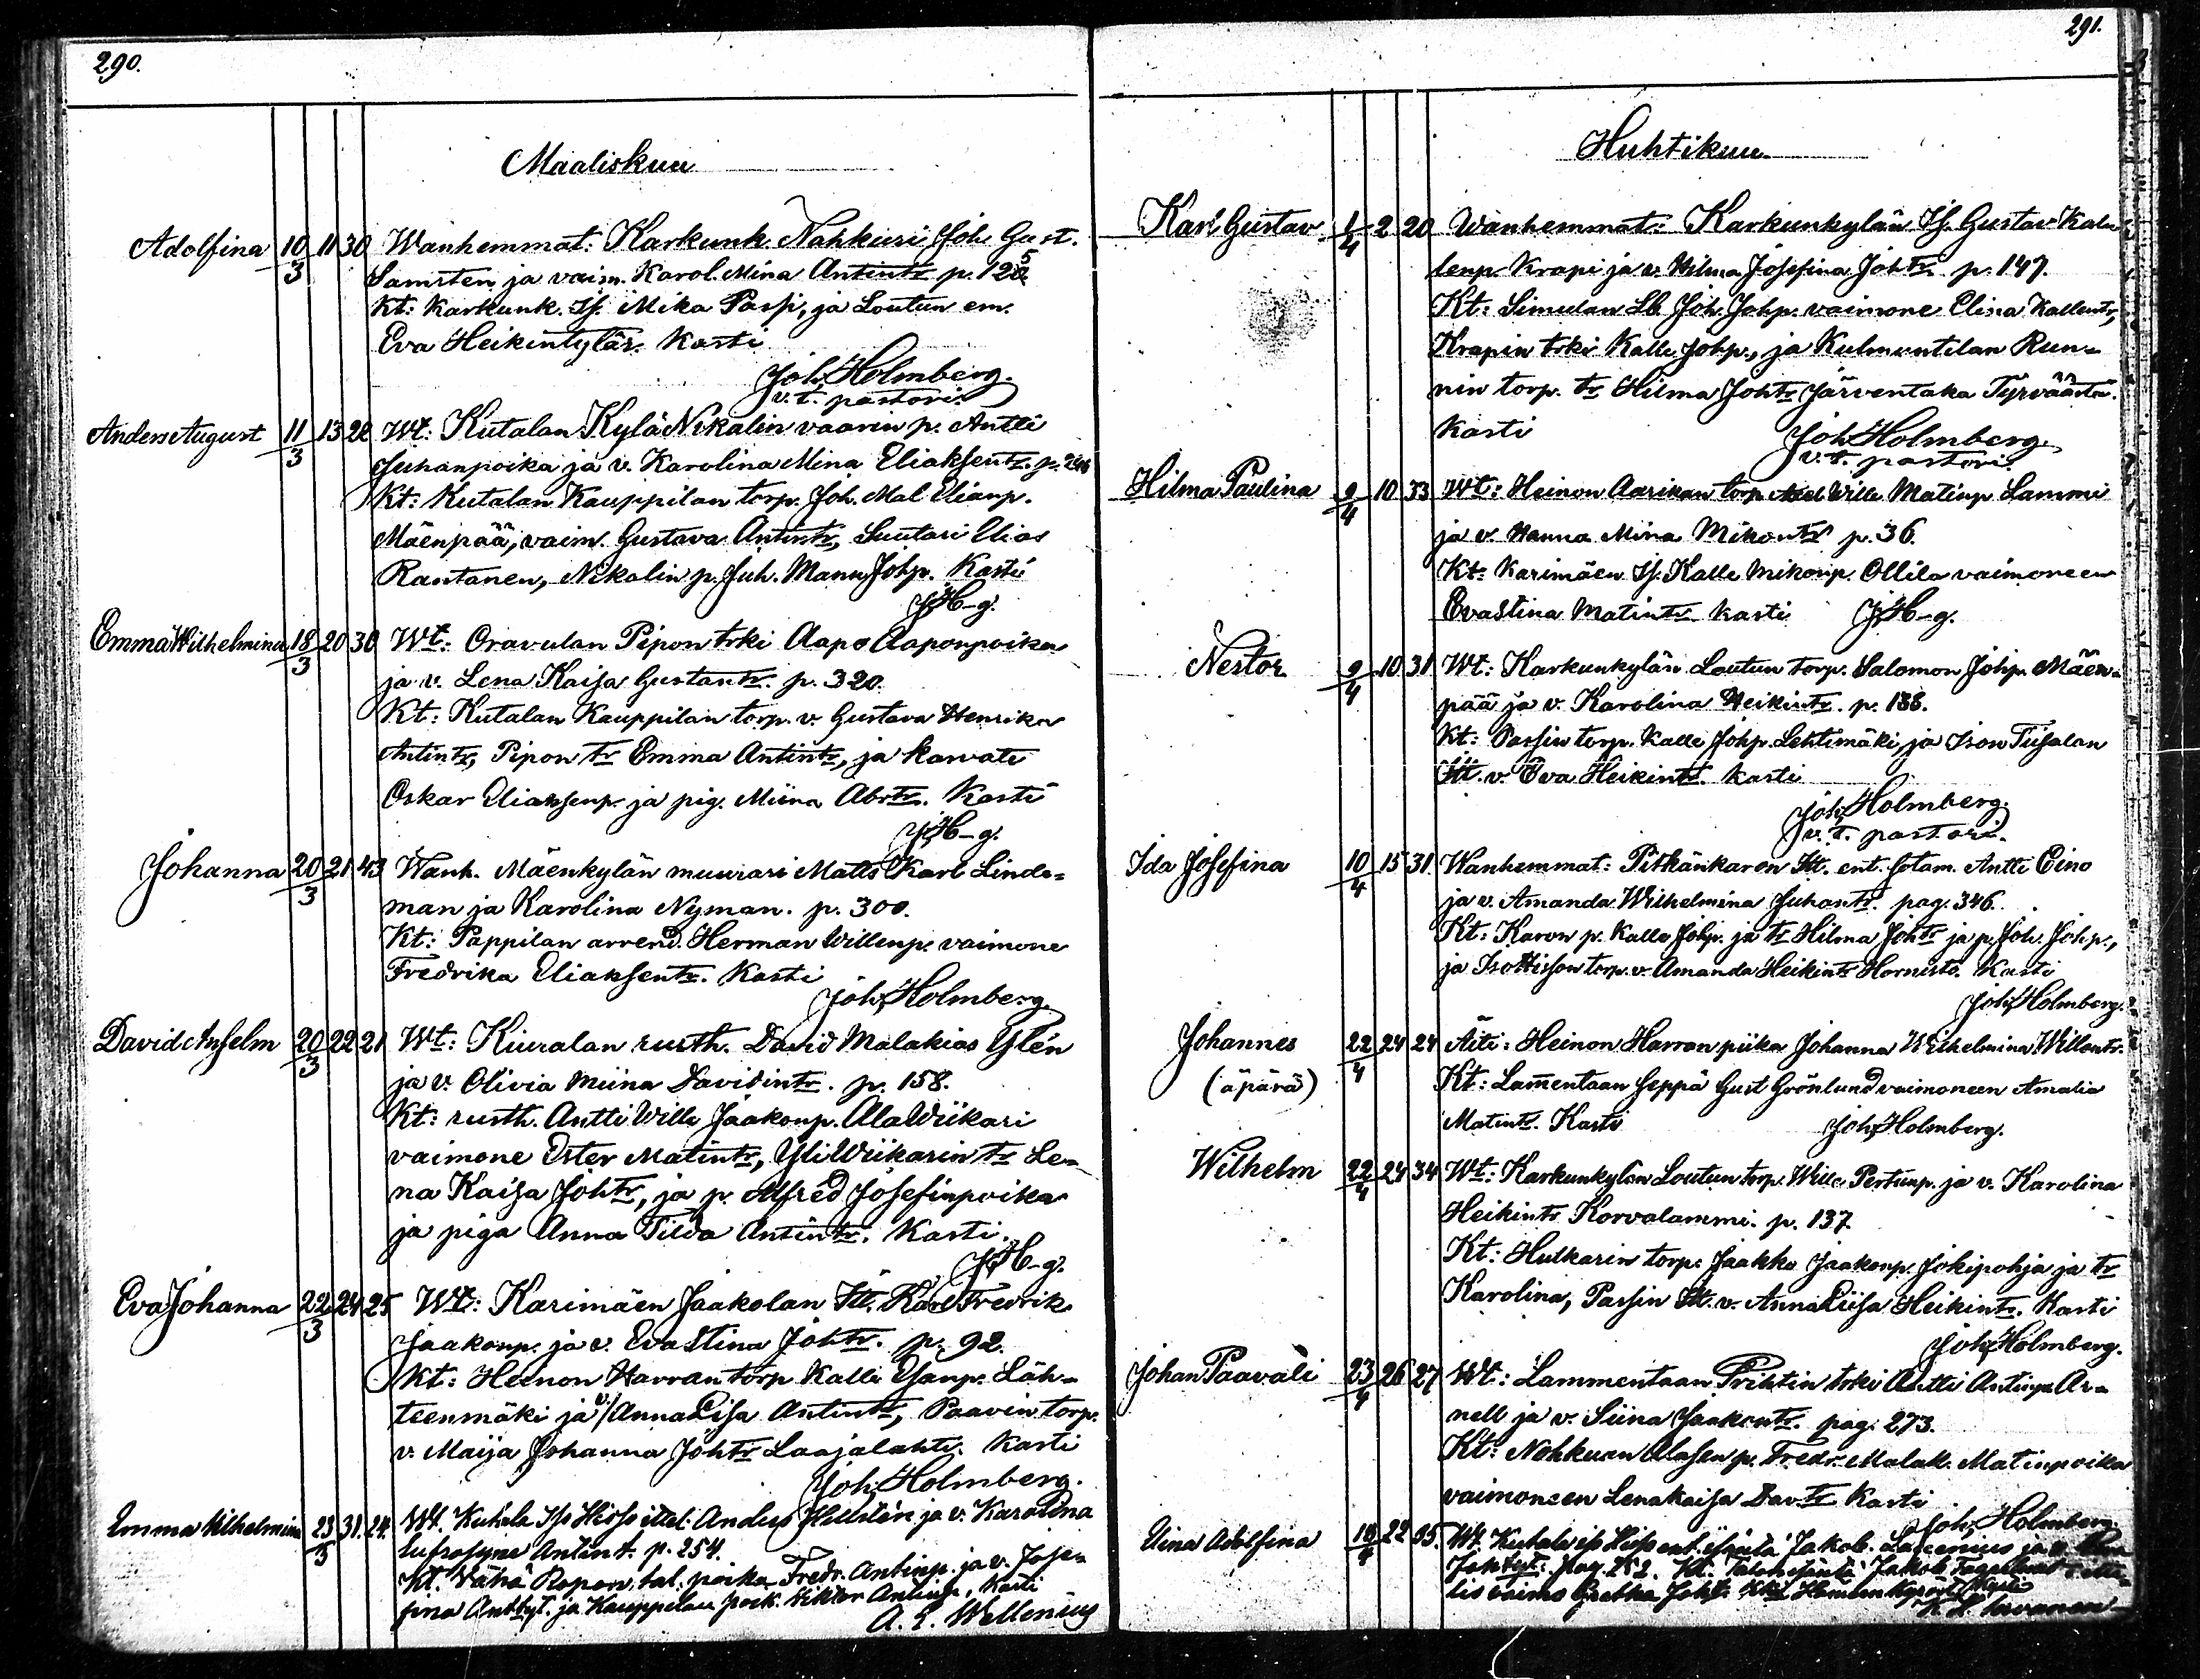 290.
Maaliskuu
Adolfina 10/3 11 30 Wanhemmat: Karkunk. Nahkuri Joh. Gust.
Samsten ja vaim. Karol. Mina Antintr p. 125
Kt: Karkunk. If. Mika Passi, ja Loutun em.
Eva Heikintytär. Kasti
Joh. Holmberg.
v. t. pastori.
Anders August 11/3 13 28 Wt: Kutalan Kylä Nikalin vaarin p. Antti
Juhanpoika ja v. Karolina Mina Eliaksentr. p.
Kt: Kutalan Kauppilan torp. Joh. Mal. Elianp.
Mäenpää, vaim. Gustava Antintr, Suutari Elias
Rantanen, Nikalin p. Juh. Manu Johp. Kasti
J. H-g.
Emma Wilhelmina 18/3 20 30 Wt: Oravulan Pipon trki Aapo Aaponpoika
ja v. Lena Kaisa Gustantr. p. 320.
Kt: Kutalan Kauppilan torp. v. Gustava Henrika
Antintr, Pipon tr Emma Antintr, ja karvati
Oskar Eliaksenp. ja pig. Miina Abrtr. Kasti
J. H-g.
Johanna 20/3 21 43 Wanh. Mäenkylän muurari Matts Karl Linde-
man ja Karolina Nyman. p. 300.
Kt: Pappilan arrend. Herman Willenp. vaimone
Fredrika Eliaksentr. Kasti
Joh. Holmberg.
David Anselm 20/3 22 21 Wt: Kiuralan rusth. David Malakias Ylén
ja v. Olivia Miina Davidintr. p. 158.
Kt: rusth. Antti Wille Jaakonp. Ala Wiikari
vaimone Ester Matintr, Yli Wiikarin tr Le-
na Kaisa Johtr, ja p. Alfred Josefinpoika
ja piga Anna Tilda Antintr. Kasti.
J. H-g.
Eva Johanna 22/3 24 25 Wt: Karimäen Jaakolan Itt. Karl Fredrik
Jaakonp. ja v. Eva Stina Johtr. p. 92.
Kt: Heinon Harran torp Kalle Esanp. Läh-
teenmäki ja v/ Anna Lisa Antintr, Paavin torp.
v. Maija Johanna Johtr Laajalahti. Kasti
Joh. Holmberg.
Emma Wilhelmina 23/3 31. 24. Wt. Kutala Anders Hellstén ja v. Karolina
Eufrosyne Antint. p. 254.
Kt. Vähä Ropon tal. poika Fredr. Antinp. ja v. Jose-
fina Anttyt. ja Kauppilan poik. Viktor Antinp. Kasti
A. E. Wellenius
291.
Huhtikuu
Karl Gustav 1/4 2 20 Wanhemmat: Karkunkylän If. Gustav Kalu
lenp. Krapi ja v. Wilma Josefina Johtr. p. 147.
Kt: Simulan Lb. Joh. Johp. vaimone Elina Kallentr,
Krapin trki Kalle Johp., ja Kulmuntilan Run-
nin torp. tr Hilma Johtr Järventaka Tyrväästä.
Kasti Joh. Holmberg.
v. t. pastori.
Hilma Paulina 9/4 10 33 Wt: Heinon Aarikan torp. Wille Matinp. Lammi
ja v. Hanna Mina Mikontr p. 36.
Kt: Karimäen If. Kalle Mikonp. Ollila vaimoneen
Eva Stina Matintr Kasti J. H-g.
Nestor 9/4 10 31 Wt: Karkunkylän Loutun torp. Salomon Johp. Mäen-
pää ja v. Karolina Heikintr. p. 138.
Kt: Passin torp. Kalle Johp. Lehtimäki ja Ison Tiisalan
Itt. v. Eva Heikintr. Kasti
Joh. Holmberg.
v. t. pastori.
Ida Josefina 10/4 15 31. Wanhemmat: Pitkänkaron Itt. ent. sotam. Antti Eino
ja v. Amanda Wilhelmina Juhantr. pag. 346.
Kt: Karon p. Kalle Johp. ja tr Hilma Johtr ja p. Joh. Johp.,
ja torp. v. Amanda Heikintr Hornisto. Kasti
Joh. Holmberg.
Johannes 22/4 24 24 Äiti: Heinon Harran piika Johanna Wilhelmina Willentr.
(äpärä) Kt: Lammentaan seppä Gust Grönlund vaimoneen Amalia
Matintr. Kasti Joh. Holmberg.
Wilhelm 22/4 24 34 Wt: Karkunkylän Loutun torp. Wille Pertunp. ja v. Karolina
Heikintr Korvalammi. p. 137
Kt: Hulkarin torp. Jaakko Jaakonp. Jokipohja ja tr
Karolina, Passin Itt. v. Anna Liisa Heikintr. Kasti
Joh. Holmberg.
Johan Paavali 23/4 26 27 Wt: Lammentaan Prihtin trki Antti Antinp. Ar-
nell ja v. Siina Jaakontr. pag. 273.
Kt: Nohkuan Alasen p. Fredr. Malak. Matinpoika
vaimoneen Lena Kaisa Dav.tr Kasti
Joh. Holmberg.
Tina Adolfina 18/4 22 25. Wt. Kutala Jakob. ja v.
Johtyt. pag. 252. Kt. Jakob
vaimo Johtr.